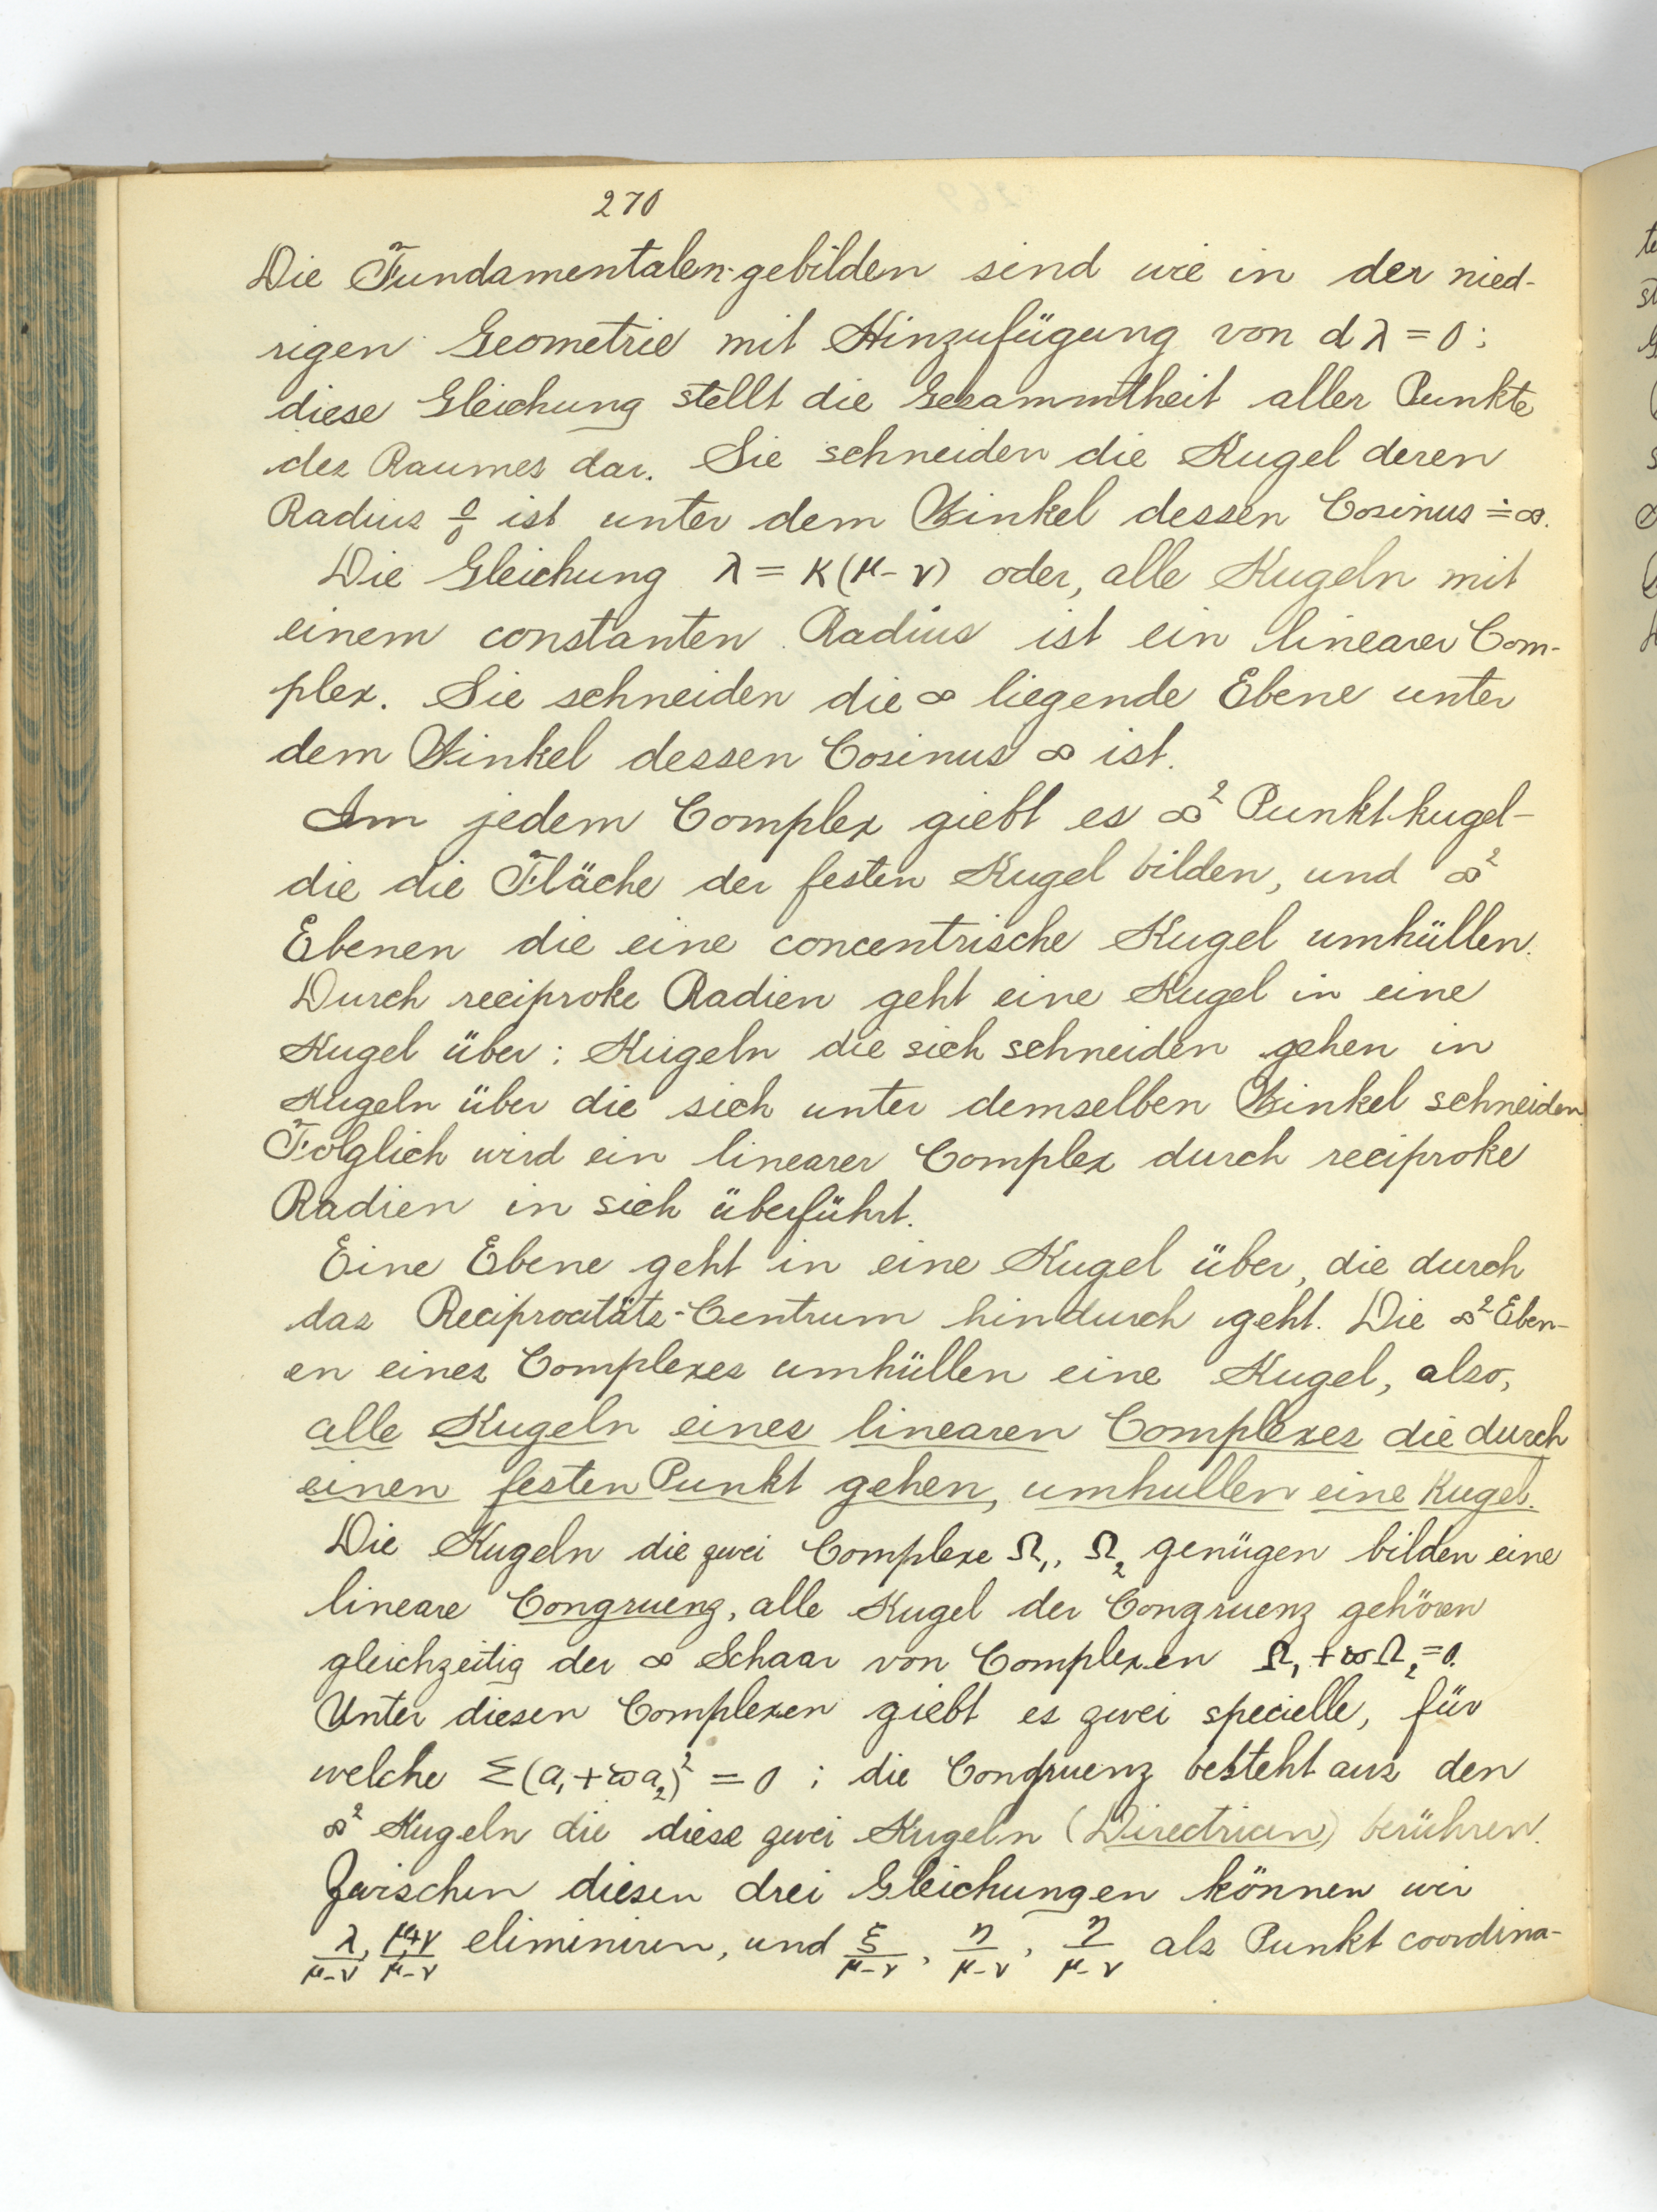 270
Die Fundamentalen-gebilden sind wie in der nied-
rigen Geometrie mit Hinzufügung von dλ = 0 :
diese Gleichung stellt die Gesammtheit aller Punkte
des Raumes dar. Sie schneiden die Kugel deren
Radius 0/0 ist unter dem Winkel dessen Cosinus = ∞.
Die Gleichung λ = K(μ - ν) oder, alle Kugeln mit
einem constanten Radius ist ein linearer Com-
plex. Sie schneiden die ∞ liegende Ebene unter
dem Winkel dessen Cosinus ∞ ist.
Im jedem Complex giebt es ∞² Punkt-kugel-
die die Fläche der festen Kugel bilden, und ∞²
Ebenen die eine concentrische Kugel umhüllen.
Durch reciproke Radien geht eine Kugel in eine
Kugel über : Kugeln die sich schneiden gehen in
Kugeln über die sich unter demselben Winkel schneiden.
Folglich wird ein linearer Complex durch reciproke
Radien in sich überführt.
Eine Ebene geht in eine Kugel über, die durch
das Reciprocitäts-Centrum hindurch geht. Die ∞² Eben-
en eines Complexes umhüllen eine Kugel, also,
alle Kugeln eines linearen Complexes die durch
einen festen Punkt gehen, umhullen eine Kugel.
Die Kugeln die zwei Complexe Ω₁, Ω₂ genügen bilden eine
lineare Congruenz, alle Kugel der Congruenz gehören
gleichzeitig der ∞ Schaar von Complexen Ω₁ + ϖΩ₂ = 0.
Unter diesen Complexen giebt es zwei specielle, für
welche Σ(a₁ + ϖa₂)² = 0 ; die Congruenz besteht aus den
∞² Kugeln die diese zwei Kugeln (Directricen) berühren.
Zwischen diesen drei Gleichungen können wir
λ/(μ-ν), (μ+ν)/(μ-ν) eliminiren, und ξ/(μ-ν), η/(μ-ν), η/(μ-ν) als Punkt coordina-